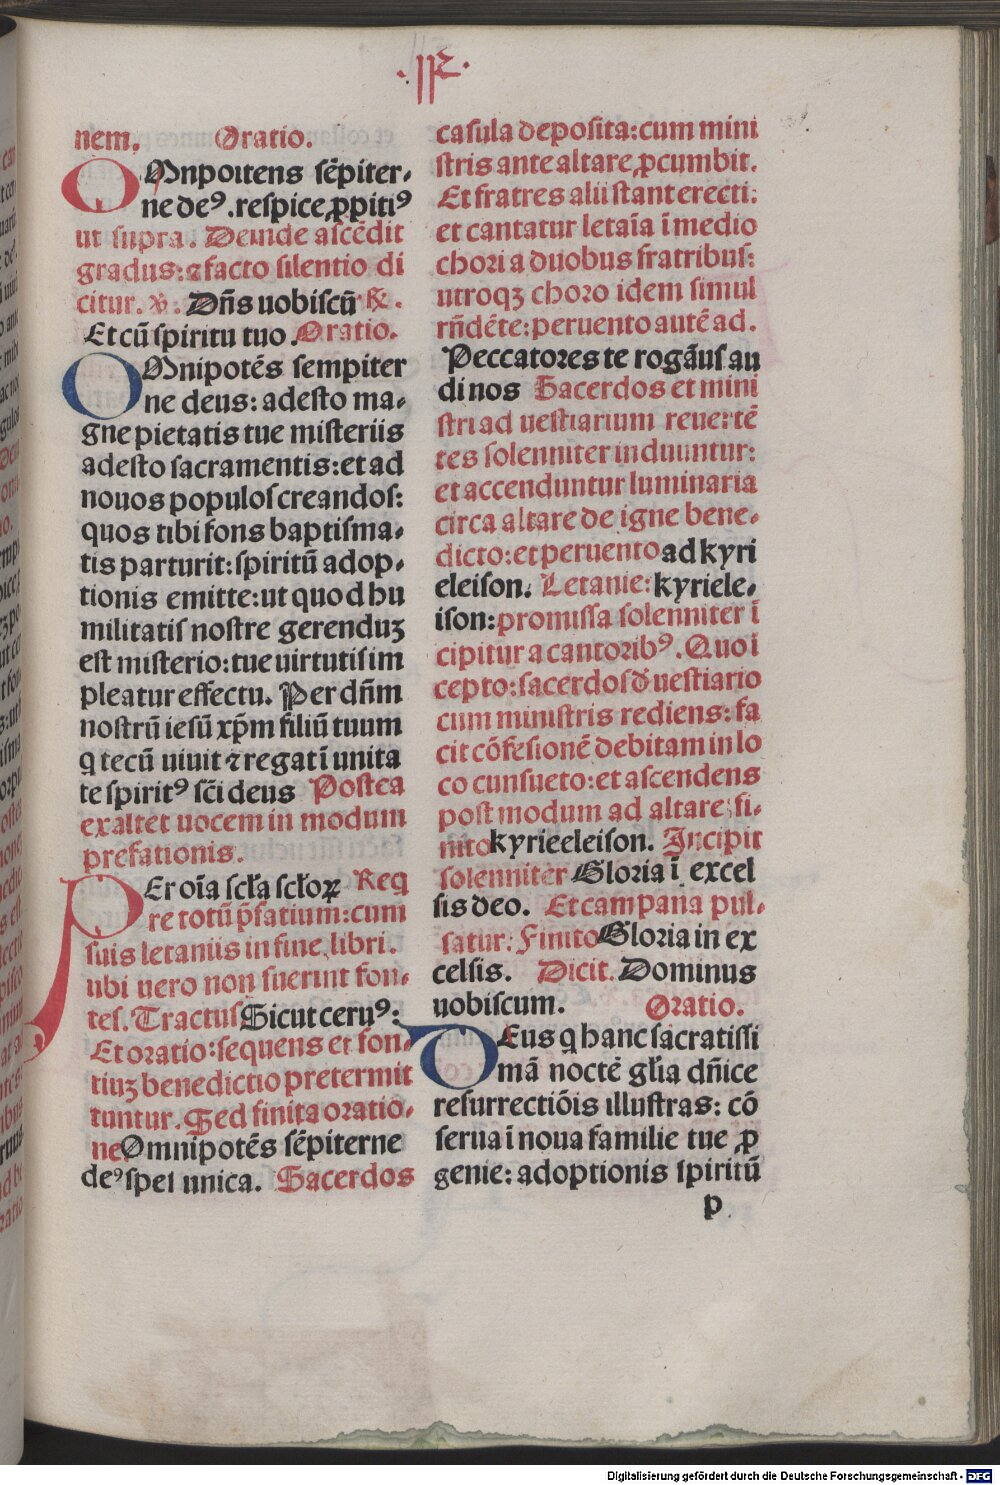 nem. Oratio.
OMnpoıtens sēpiter-
ne deꝰ. respice ꝓpitiꝰ
ut supra. Deinde ascēdit
gradus: ⁊ facto silentio di
citur. ℣. Dn̄s uobiscū ℟.
Et cū spiritu tuo. Oratio.
OMnipotēs sempiter
ne deus: adesto ma-
gne pietatis tue misteriis
adesto sacramentis: et ad
nouos populos creandos:
quos tibi fons baptisma-
tis parturit: spiritū adop-
tionis emitte: ut quod hu
militatis nostre gerenduꝫ
est misterio: tue uirtutis im
pleatur effectu. Per dn̄m
nostrū iesū xp̄m filiū tuum
q tecū uiuit ⁊ regat ī unita
te spiritꝰ sc̄i deus Postea
exaltet uocem in modum
prefationis.
PEr oīa scl̄a scl̄oꝝ Req
re totū p̄fatium: cum
suis letaniis in fine libri.
ubi uero non fuerint fon-
tes. Tractus Sicut ceruꝰ:
Et oratio: sequens et fon-
tiuꝫ benedictio pretermit
tuntur. Sed finita oratio-
ne Omnipotēs sēpiterne
deꝰ spei unica. Sacerdos
casula deposita: cum mini
stris ante altare ꝓcumbit.
Et fratres alii stant erecti:
et cantatur letaīa ī medio
chori a duobus fratribus:
utroqꝫ choro idem simul
rn̄dēte: peruento autē ad.
Peccatores te rogāus au
di nos Sacerdos et mini
stri ad uestiarium reuertē
tes solenniter induuntur:
et accenduntur luminaria
circa altare de igne bene-
dicto: et peruento ad kyri
eleison. Letanie: kyriele-
ison: promissa solenniter ī
cipitur a cantoribꝰ. Quo ī
cepto: sacerdos đ uestiario
cum ministris rediens: fa
cit cōfesionē debitam in lo
co cunsueto: et ascendens
post modum ad altare: fi-
nito kyrieeleison. Incipit
solenniter Gloria ī excel
sis deo. Et campana pul-
satur: Finito Gloria in ex
celsis. Dicit. Dominus
uobiscum. Oratio.
DEus q hanc sacratissi
mā noctē gl̄ia dn̄ice
resurrectiōis illustras: cō
serua ī noua familie tue ꝓ
genie: adoptionis spiritū
p
Digitalisierung gefördert durch die Deutsche Forschungsgemeinschaft - DFG